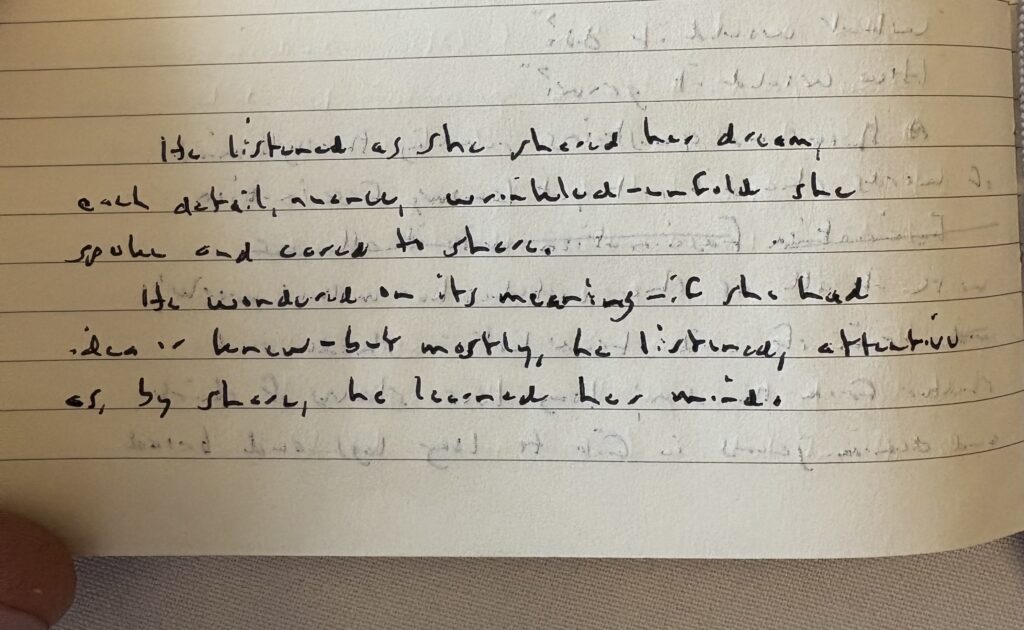 He listened as she shared her dream,
each detail, nuance, wrinkled-unfold she
spoke and cared to share.
He wondered on its meaning-if she had
idea or knew-but mostly, he listened, attentive
as, by share, he learned her mind.